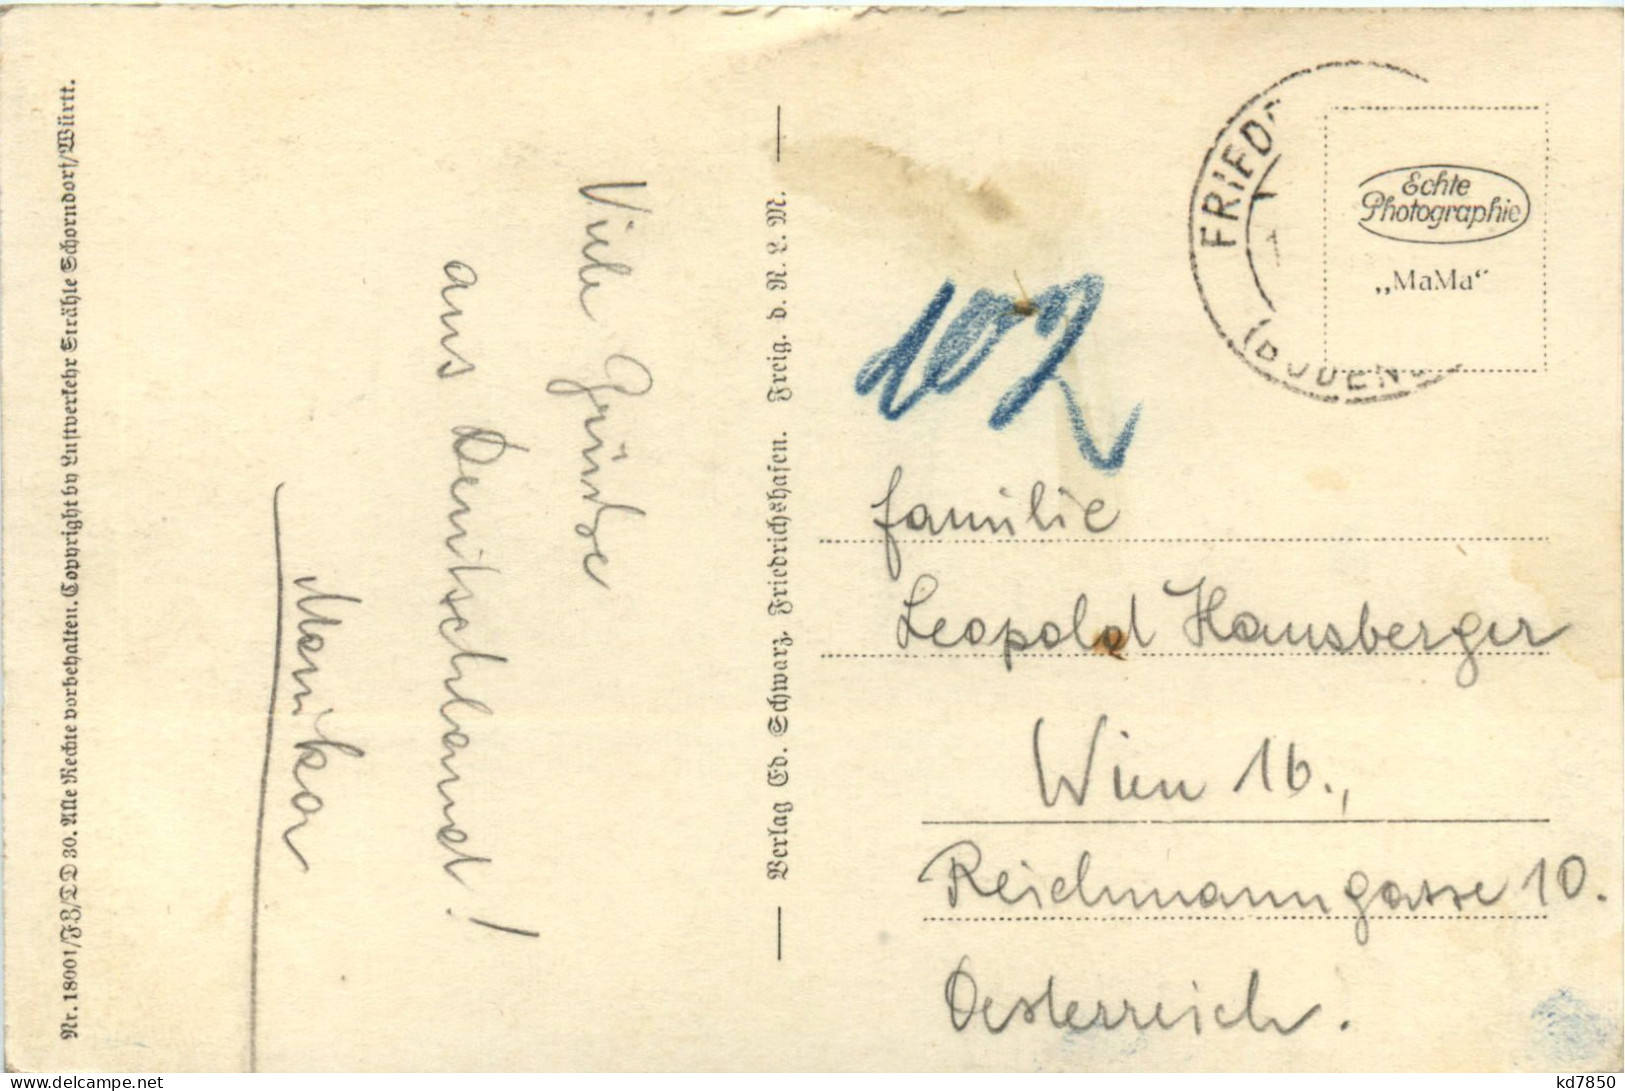 Nr. 18001/FB/DD 30. Alle Rechte vorbehalten. Copyright by Luftverkehr Strähle Schorndorf/Württ.
Viele Grüsse
aus Deutschland!
Monika
Verlag Ed. Schwarz, Friedrichshafen. Freig. d. R. L. M.
FRIED
(BODEN
Echte
Photographie
„MaMa“
Familie
Leopold Hausberger
Wien 16.,
Reichmanngasse 10.
Oesterreich.
www.delcampe.net
kd7850